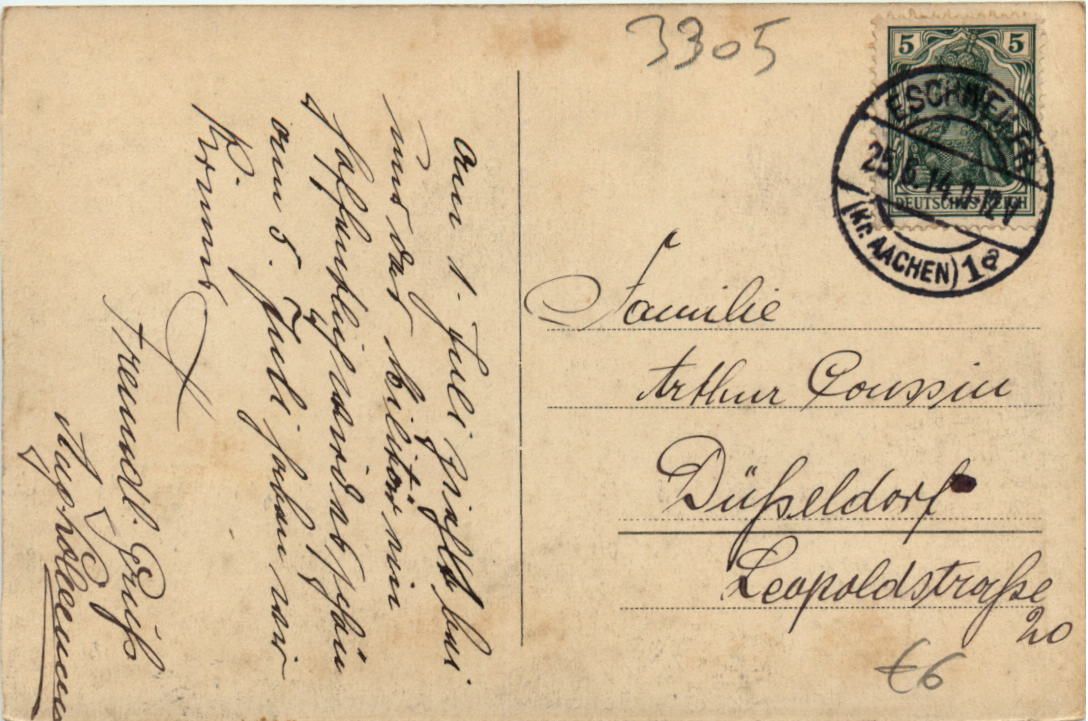 3305
5 5
DEUTSCHES REICH
ESCHWEILER
25.6.14.
(Kr. AACHEN) 1a
Am 1. Juli zieht bei
uns das Militär ein
hoffentlich wird es schön
am 5. Juli haben wir
Kirmes
Freundl. Gruß
Aug.
Familie
Arthur Coussin
Düßeldorf
Leopoldstraße
20
€6